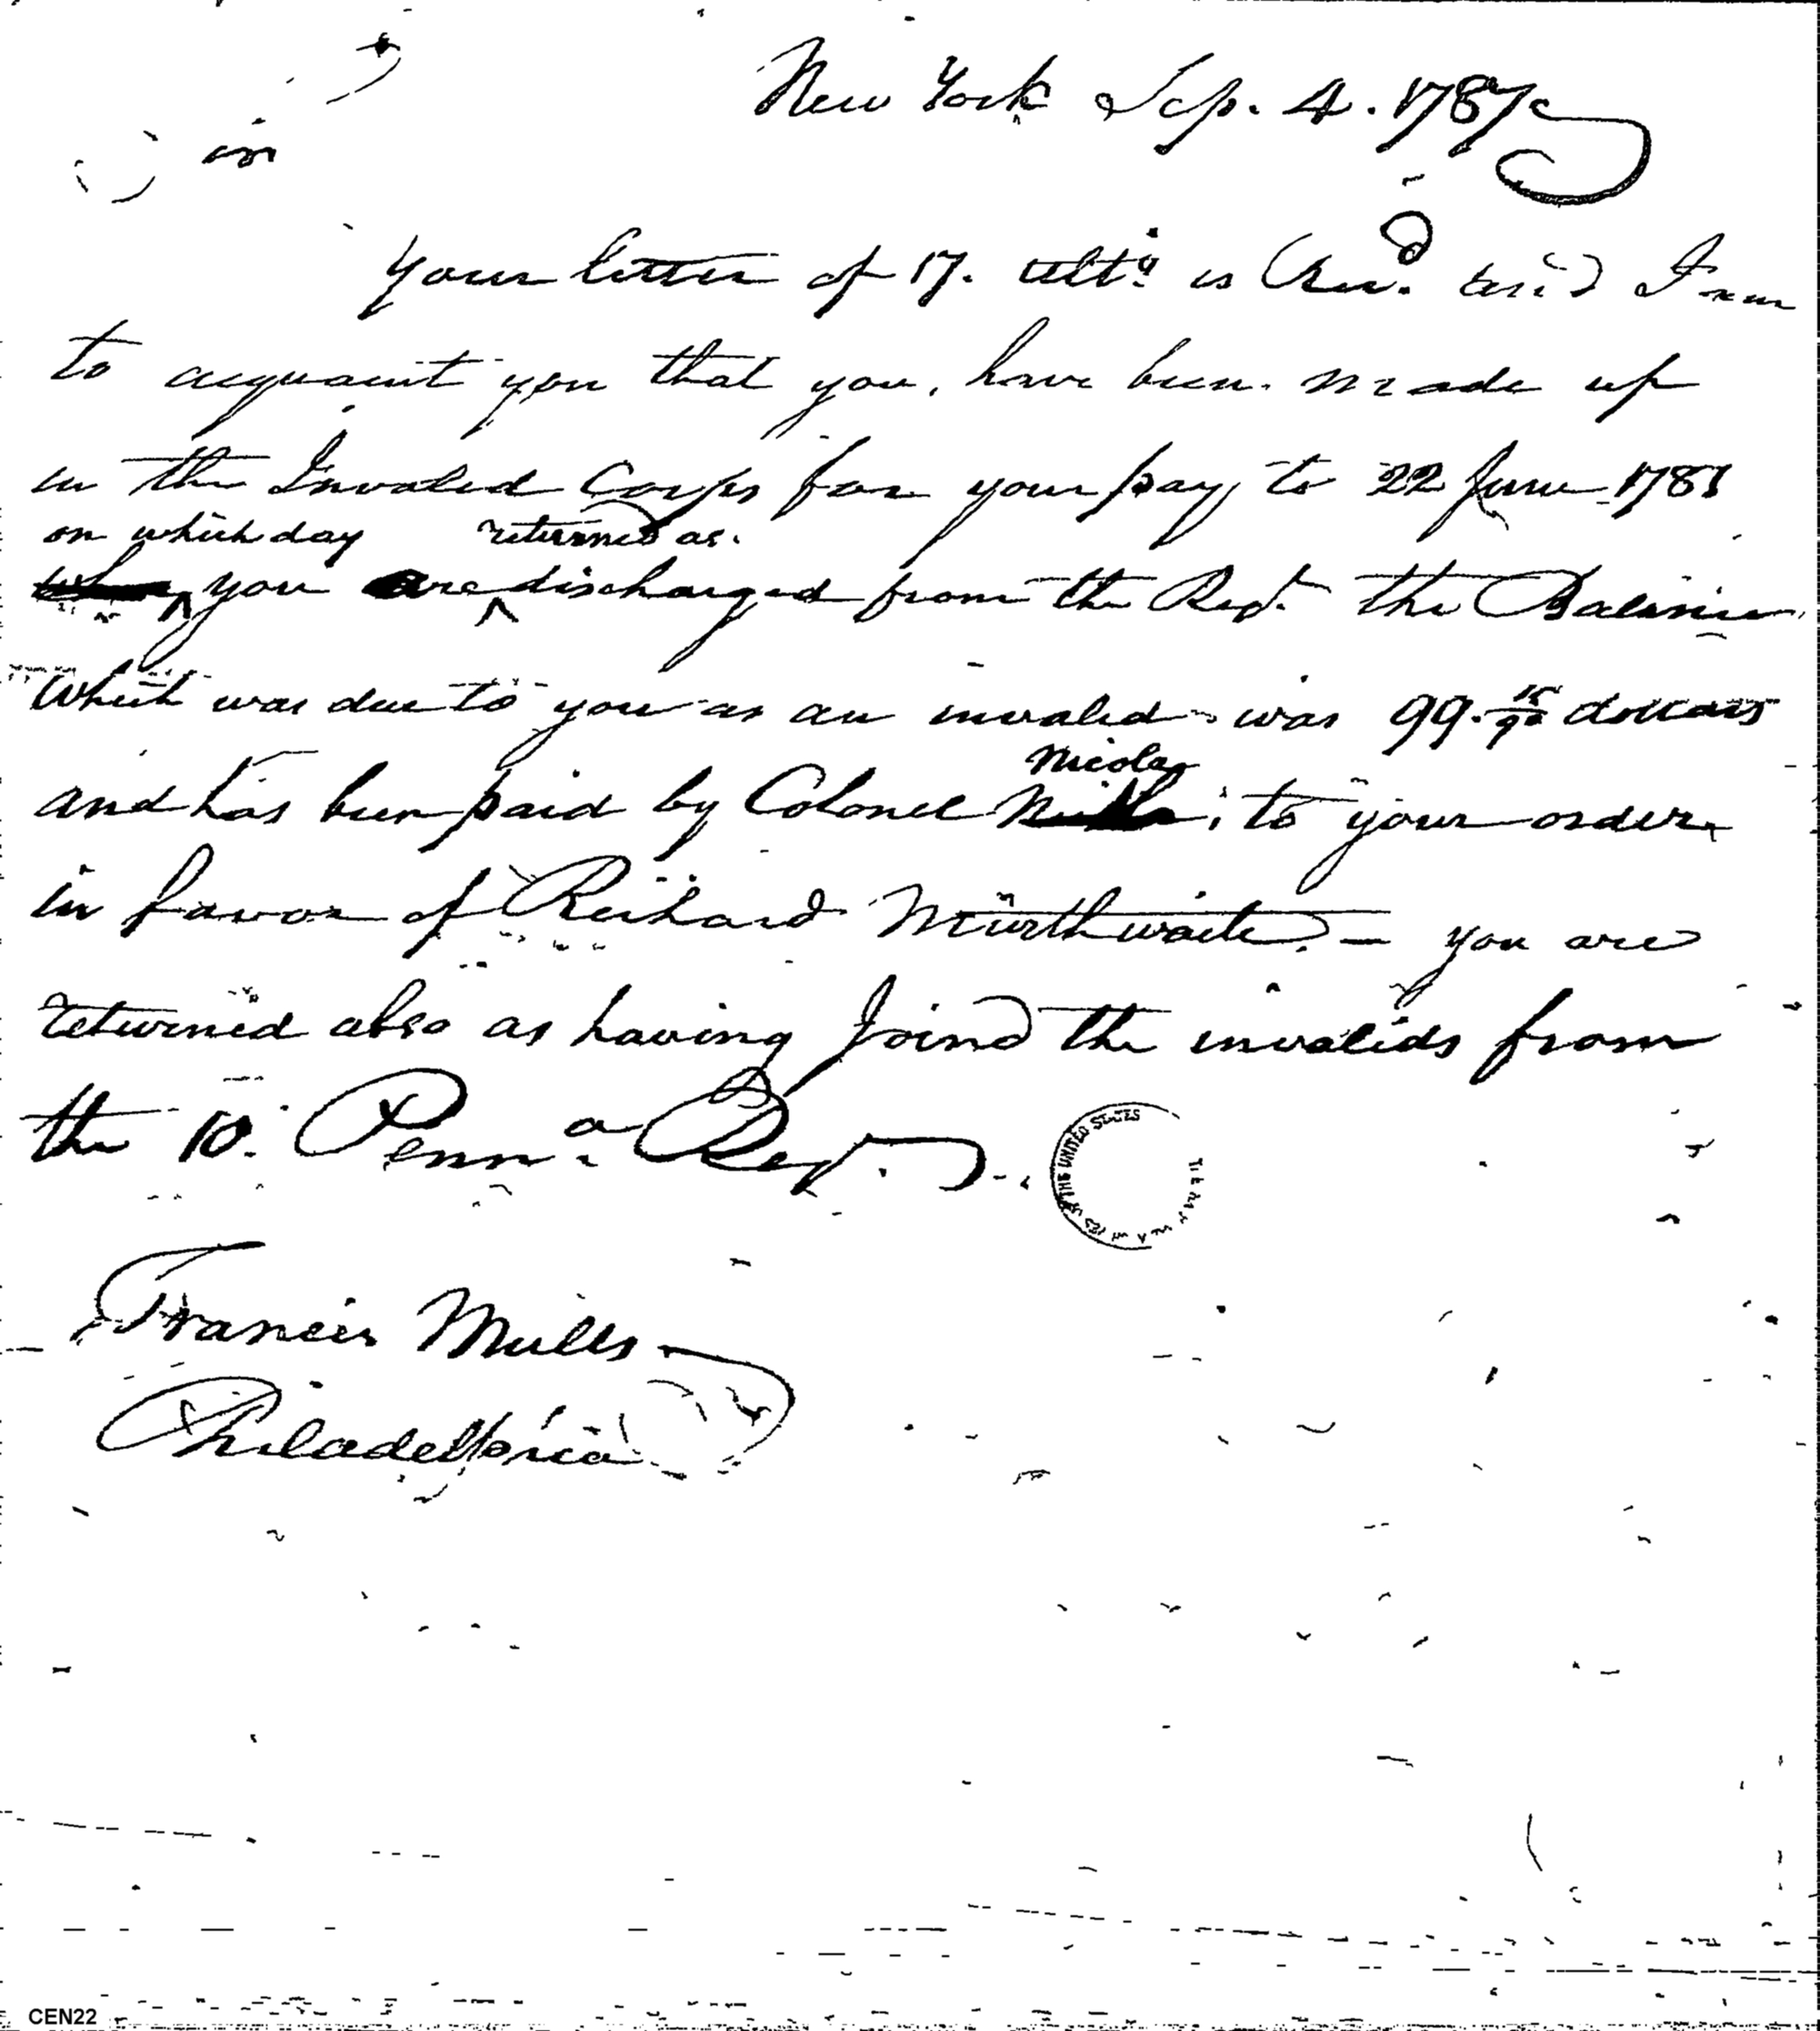 New York Sep. 4. 1787
Your letter of 17. ulto is Recd. and I am
to acquaint you that you, have been made up
in the Invalid Corps for your pay to 22 June 1781
on which day returned as.
you are discharged from the Regt. the Balance
which was due to you as an invalid was 99. 15/90 dollars
Nicola
and has been paid by Colonel to your order
in favor of Richard Murthwaite. — you are
returned also as having Joind the invalids from
the 10. Penn.a Regt.
THE UNITED STATES
Francis Mills
Philadelphia
CEN22